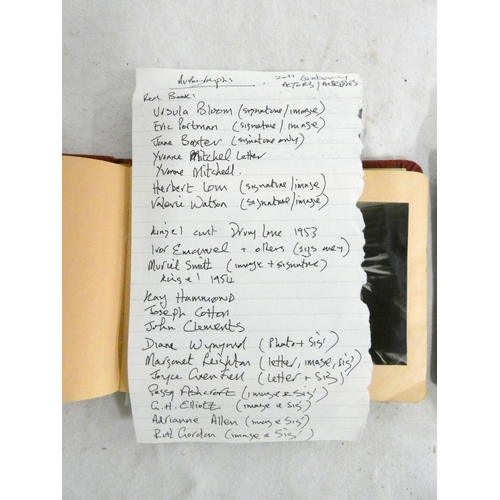 Autographs 20th Century
ACTORS/ACTRESSES
Red Book:
Ursula Bloom (signature/image)
Eric Portman (signature/image)
Jane Baxter (signature only)
Yvonne Mitchel Letter
Yvonne Mitchell.
Herbert Lom (signature/image)
Valerie Watson (signature/image)
Drury Lane 1953
Ivor Emanuel + others (sigs only)
Muriel Smith (image + signature)
1954
Kay Hammond
Joseph Cotton
John Clements
Diane Wynyard (Photo + Sig)
Margaret Leighton (letter, image, sig)
Joyce Grenfell (Letter + Sig)
Peggy Ashcroft (image & Sig)
G.H. Elliott (image & Sig)
Adrianne Allen (image & Sig)
Ruth Gordon (image & Sig)